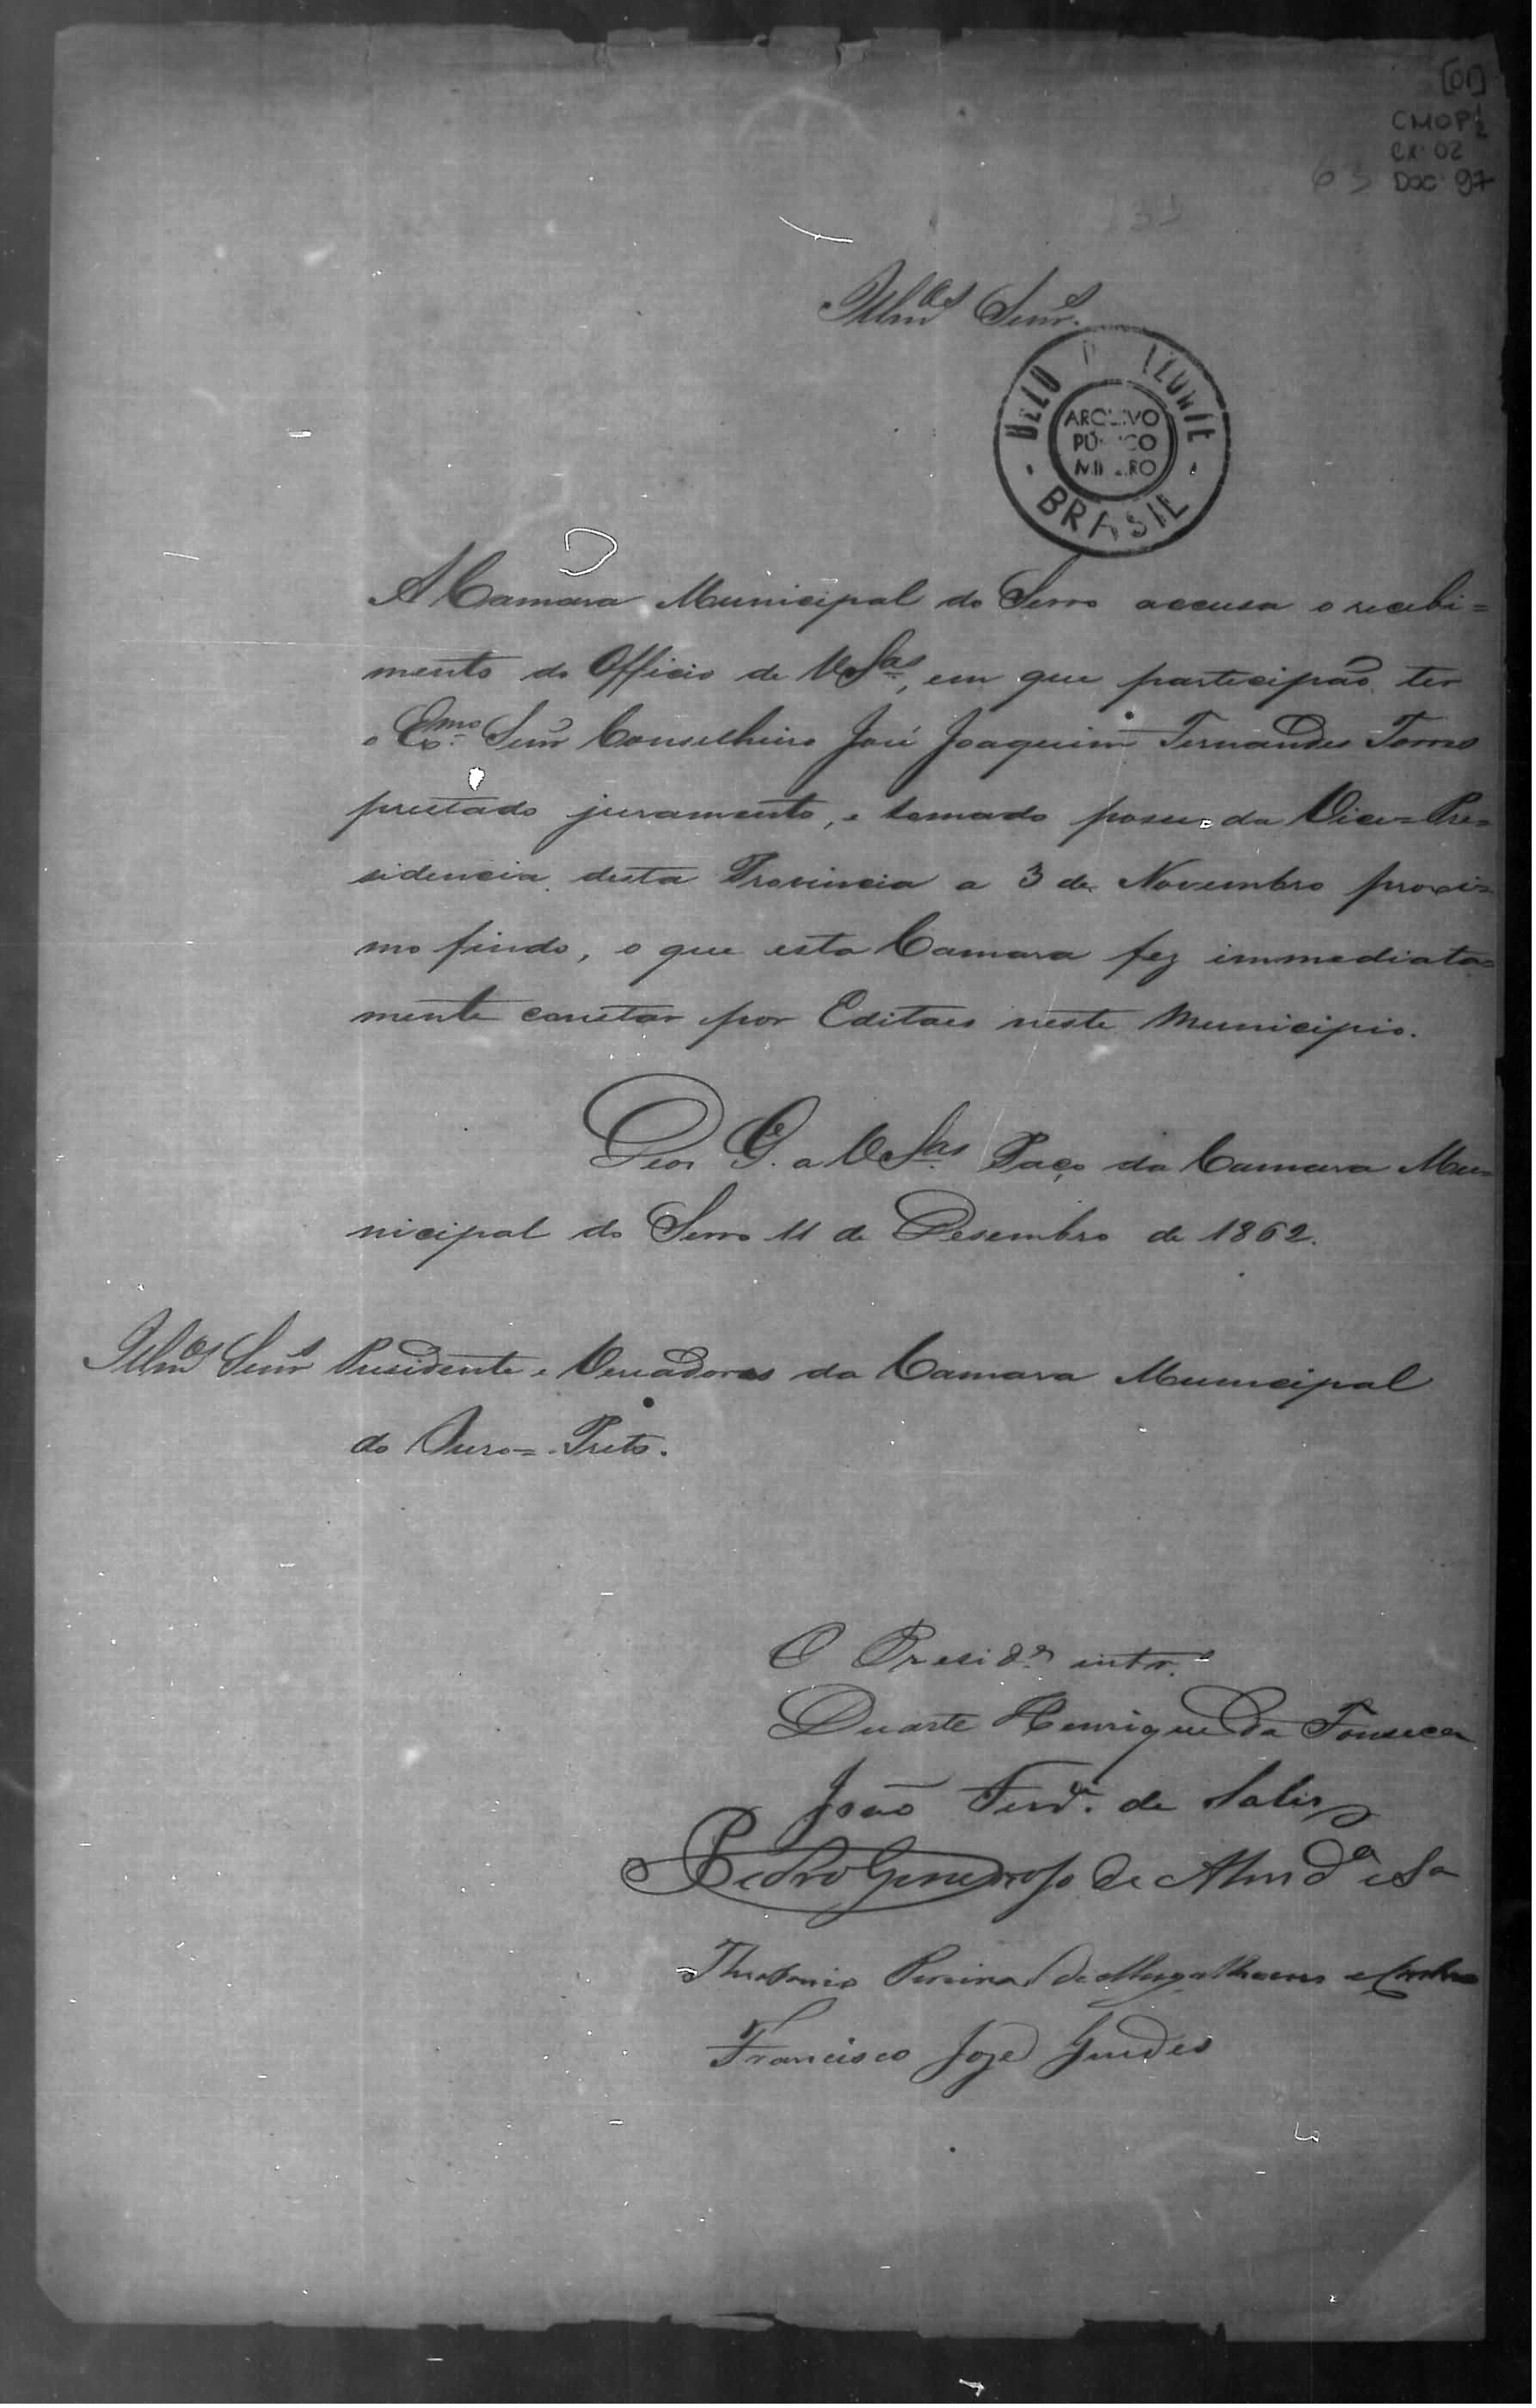 [01]
CMOP 1/2
CX. 02
63 DOC 97
Illmos Senrs.
BELO HORIZONTE
ARQUIVO
PÚBLICO
MINEIRO
BRASIL
A Camara Municipal do Serro accusa o recebi=
mento do Officio de VSas, em que participão ter
o Exmo. Senr Conselheiro José Joaquim Fernandes Torres
prestado juramento, e tomado posse da Vice=Pre=
sidencia desta Provincia a 3 de Novembro proxi=
mo findo, o que esta Camara fez immediata=
mente constar por Editaes neste Municipio.
Deos G. a VSas. Paço da Camara Mu=
nicipal do Serro 11 de Desembro de 1862.
Illmos Senrs Presidente e Vereadores da Camara Municipal
do Ouro=Preto.
O Preside. intro.
Duarte Henrique da Fonseca
João Ferra. de Salis
Pedro Generoso de Almda e Sa
Theotonio Pereira de Magalhaens e Castro
Francisco Joze Guedes